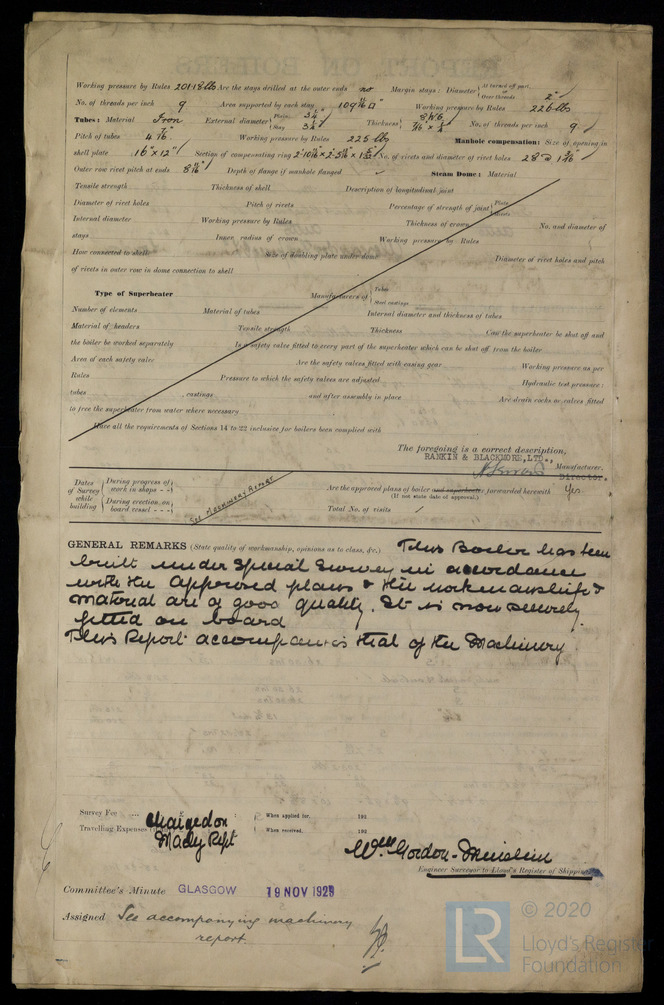 Working pressure by Rules 201·18 lb Are the stays drilled at the outer ends no Margin stays: Diameter { At turned off part, or Over threads 2"
No. of threads per inch 9 Area supported by each stay 109 Working pressure by Rules 226 lbs
Tubes: Material Iron External diameter { Plain 3¼" Stay 3¼" Thickness { No. of threads per inch 9
Pitch of tubes 4 7/16" Working pressure by Rules 225 lbs Manhole compensation: Size of opening in
shell plate 16" x 12" Section of compensating ring No. of rivets and diameter of rivet holes 28 @ 1 3/16"
Outer row rivet pitch at ends Depth of flange if manhole flanged Steam Dome: Material
Tensile strength Thickness of shell Description of longitudinal joint
Diameter of rivet holes Pitch of rivets Percentage of strength of joint { Plate Rivets
Internal diameter Working pressure by Rules Thickness of crown No. and diameter of
stays Inner radius of crown Working pressure by Rules
How connected to shell Size of doubling plate under dome Diameter of rivet holes and pitch
of rivets in outer row in dome connection to shell
Type of Superheater Manufacturers of { Tubes Steel castings
Number of elements Material of tubes Internal diameter and thickness of tubes
Material of headers Tensile strength Thickness Can the superheater be shut off and
the boiler be worked separately Is a safety valve fitted to every part of the superheater which can be shut off from the boiler
Area of each safety valve Are the safety valves fitted with easing gear Working pressure as per
Rules Pressure to which the safety valves are adjusted Hydraulic test pressure:
tubes , castings and after assembly in place Are drain cocks or valves fitted
to free the superheater from water where necessary
Have all the requirements of Sections 14 to 22 inclusive for boilers been complied with
The foregoing is a correct description,
RANKIN & BLACKMORE, LTD., Manufacturer.
Director.
Dates of Survey while building { During progress of work in shops - - During erection on board vessel - - - See Machinery Report
Are the approved plans of boiler and superheater forwarded herewith Yes
(If not state date of approval.)
Total No. of visits /
GENERAL REMARKS (State quality of workmanship, opinions as to class, &c.) This Boiler has been
built under Special Survey in accordance
with the approved plans & the workmanship &
material are of good quality. It is now securely
fitted on board
This Report accompanies that of the Machinery.
Survey Fee ... Charged on When applied for, 192
Travelling Expenses Machy Rept When received, 192
Wm Gordon-
Engineer Surveyor to Lloyd's Register of Shipping.
Committee's Minute GLASGOW 19 NOV 1929
Assigned See accompanying machinery
report.
LR © 2020
Lloyd's Register
Foundation